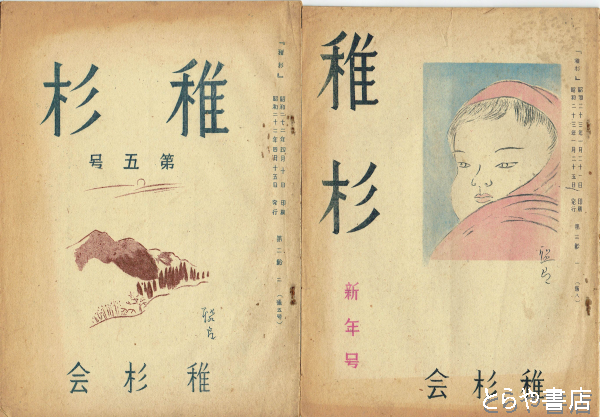 稚杉
第五号
「稚杉」
昭和二十二年四月十日 印刷
昭和二十二年四月十五日 発行
第二節
(第五号)
稚杉会
稚杉
新年号
「稚杉」
昭和二十三年一月二十一日 印刷
昭和二十三年一月二十五日 発行
稚杉会
とらや書店